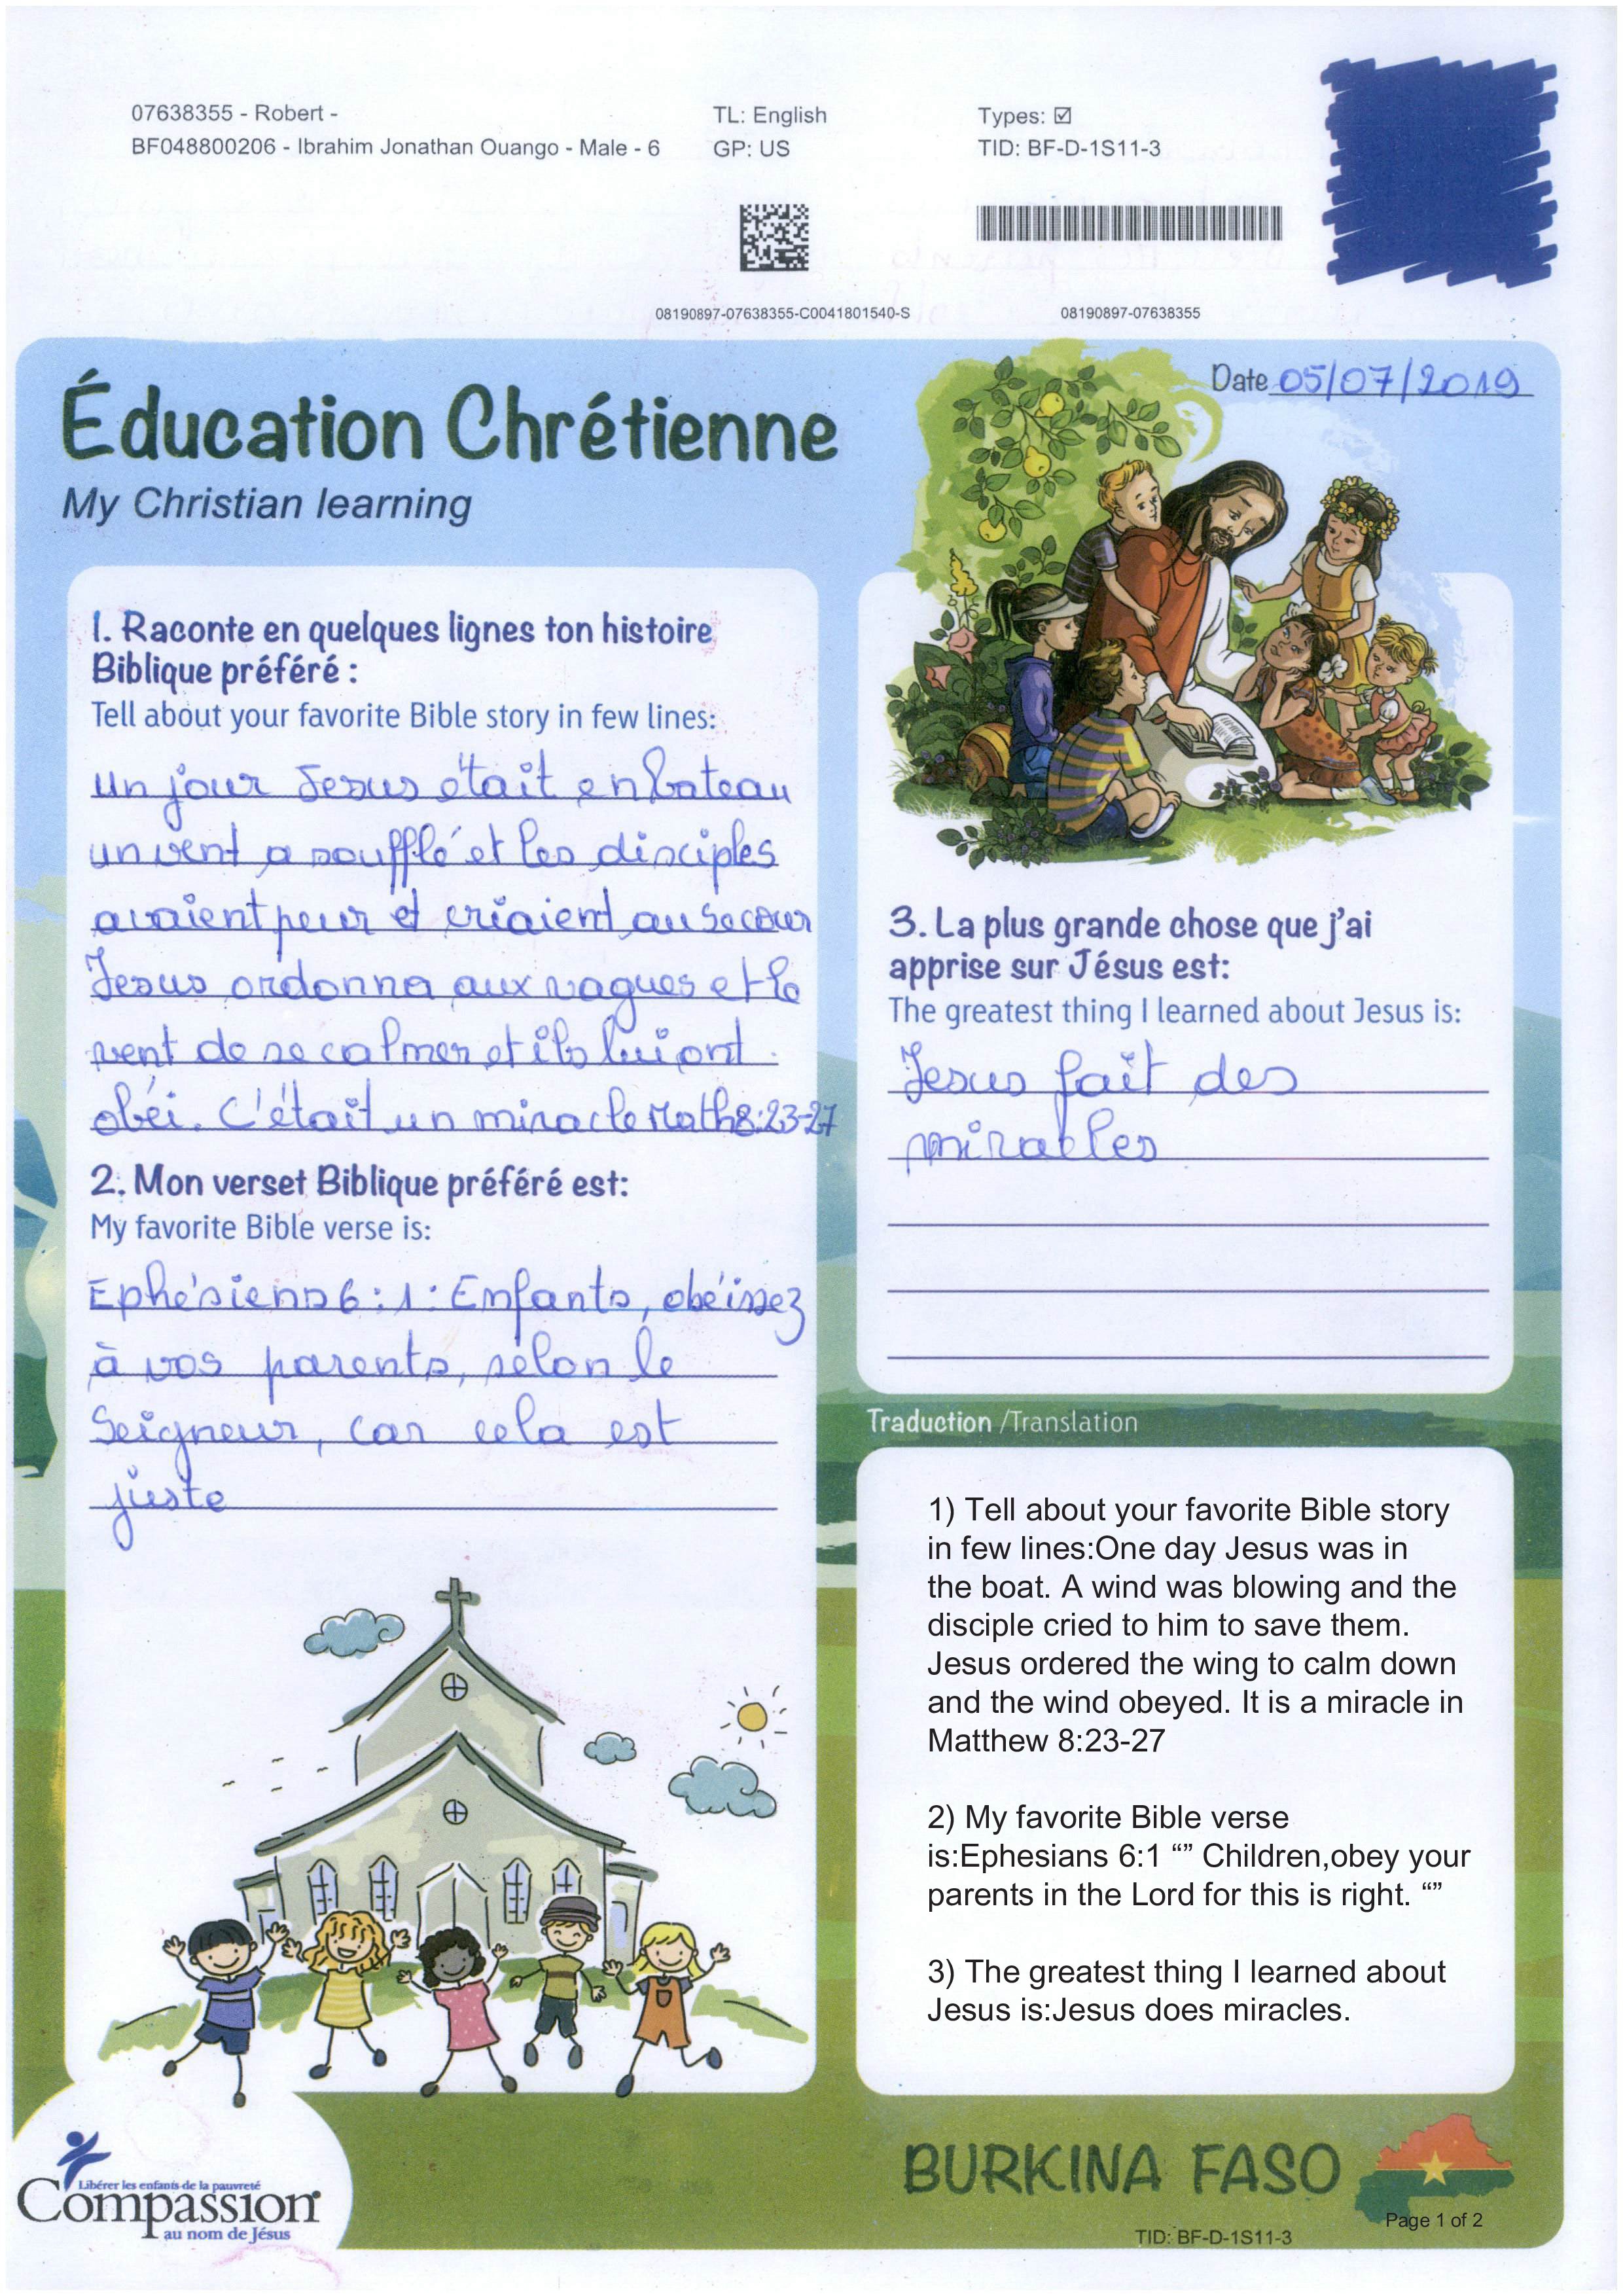 07638355 - Robert -
BF048800206 - Ibrahim Jonathan Ouango - Male - 6
TL: English
GP: US
Types: ☑
TID: BF-D-1S11-3
08190897-07638355-C0041801540-S
08190897-07638355
Date 05/07/2019
Éducation Chrétienne
My Christian learning
1. Raconte en quelques lignes ton histoire
Biblique préféré :
Tell about your favorite Bible story in few lines:
un jour Jesus était en bateau
un vent a soufflé et les disciples
avaient peur et criaient au secour
Jesus ordonna aux vagues et le
vent de se calmer et ils lui ont
obéi. C'était un miracle Math8:23-27
2. Mon verset Biblique préféré est:
My favorite Bible verse is:
Ephésiens 6:1: Enfants, obéissez
à vos parents, sélon le
Seigneur, car cela est
juste
3. La plus grande chose que j'ai
apprise sur Jésus est:
The greatest thing I learned about Jesus is:
Jesus fait des
miracles
Traduction /Translation
1) Tell about your favorite Bible story
in few lines:One day Jesus was in
the boat. A wind was blowing and the
disciple cried to him to save them.
Jesus ordered the wing to calm down
and the wind obeyed. It is a miracle in
Matthew 8:23-27
2) My favorite Bible verse
is:Ephesians 6:1 “” Children,obey your
parents in the Lord for this is right. “”
3) The greatest thing I learned about
Jesus is:Jesus does miracles.
Libérer les enfants de la pauvreté
Compassion
au nom de Jésus
BURKINA FASO
Page 1 of 2
TID: BF-D-1S11-3